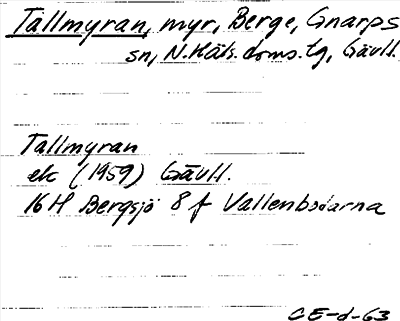 Tallmyran, myr, Berge, Gnarps
sn, N.Häls. doms. tg, Gävll.
Tallmyran
ek (1959) Gävll.
16H Bergsjö 8 f Vallenbodarna
CE-d-63